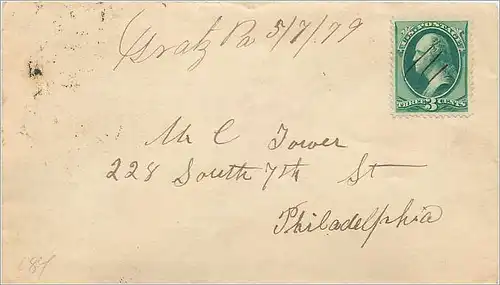 Gratz Pa 5/7/79
U.S. POSTAGE
THREE 3 CENTS
Mr C Tower
228 South 7th St
Philadelphia